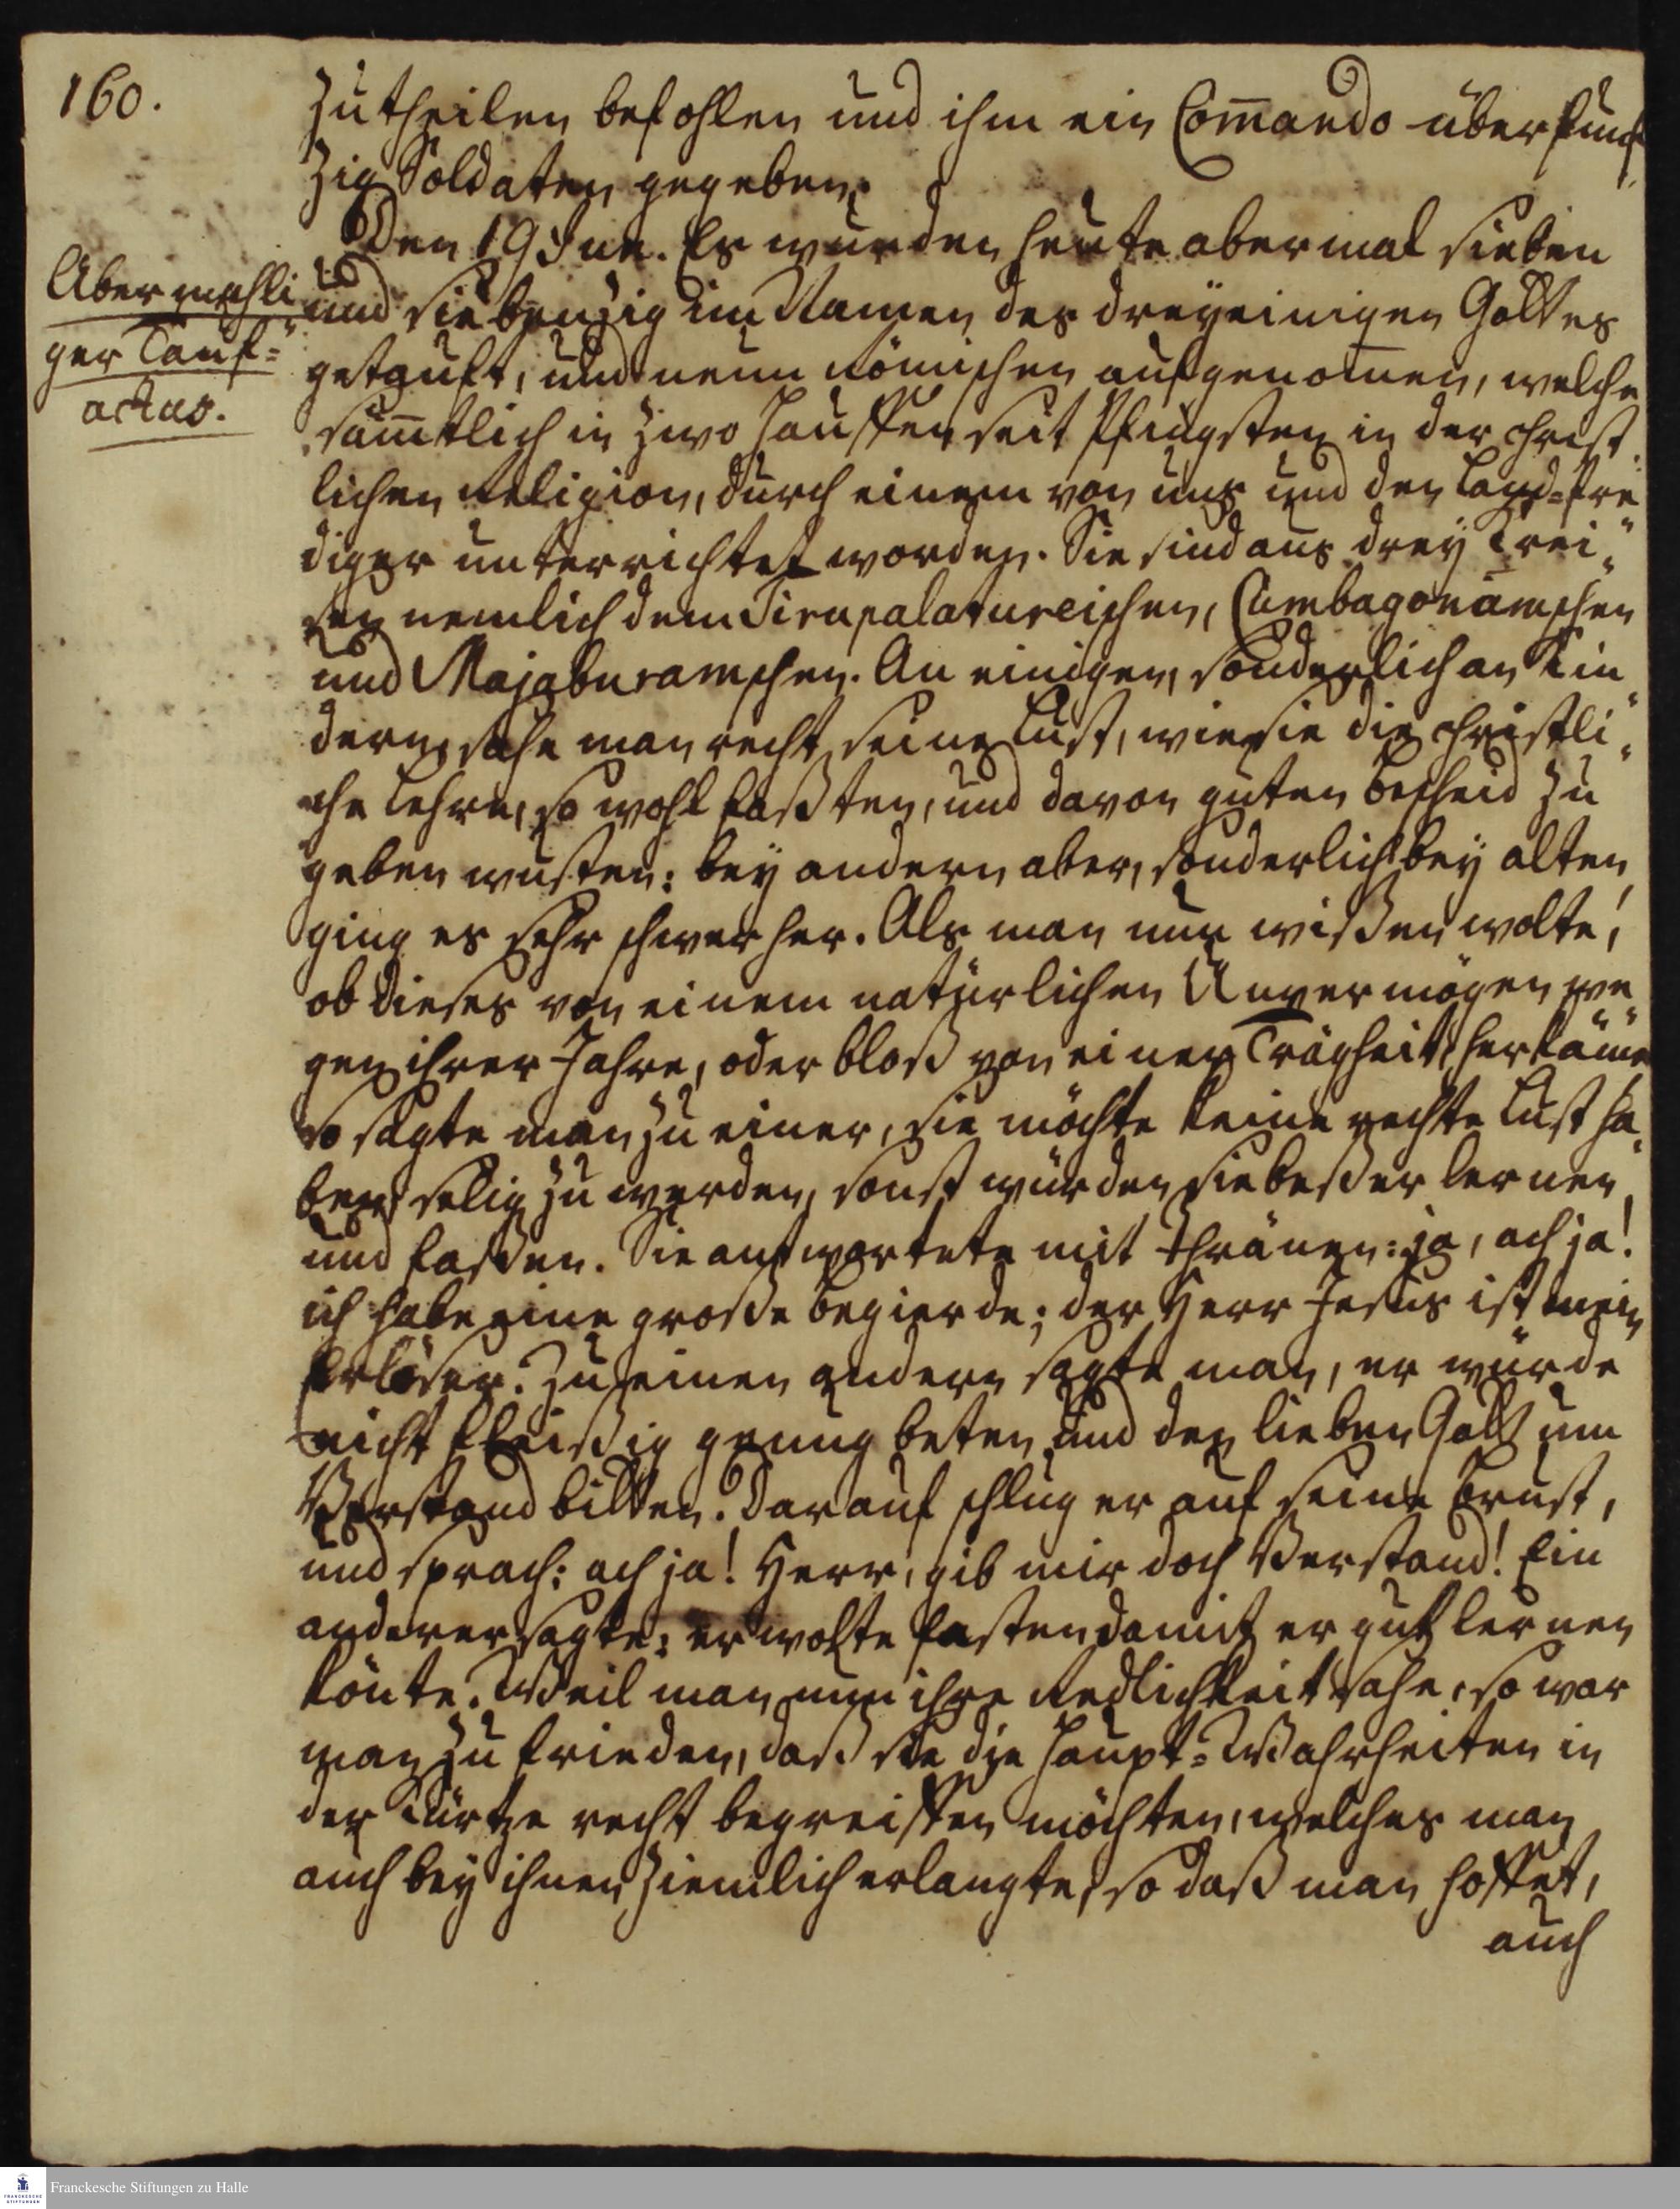 160.
zutheilen befohlen und ihm ein Com̄ando über funf„
zig Soldaten gegeben.
Den 19 Jun. Es wurden heute abermal sieben
Abermahli„
ger Tauf=
actus.
und siebenzig im Namen des dreyeinigen Gottes
getauft, und neun Römischen aufgenom̄en, welche
säm̄tlich in zwo Hauffen seit Pfingsten in der christ„
lichen Religion, durch einem von uns und den Land=Pre„
diger unterrichtet worden. Sie sind aus drey Krei„
sen nemlich dem Tirupalatureischen, Cumbagonamschen
und Majaburamschen. An einigen, sonderlich an Kin„
dern, sahe man recht seine Lust, wie sie die christli„
che Lehre, so wohl faßten, und davon guten Bescheid zu
geben wusten: bey andern aber, sonderlich bey alten
ging es sehr schwer her. Als man nun wißen wolte,
ob dieses von einem natürlichen Unvermögen we„
gen ihrer Jahre, oder bloß von einer Trägheit herkäme
so sagte man zu einer, sie möchte keine rechte Lust ha„
ben selig zu werden, sonst würden sie beßer lernen
und faßen. Sie antwortete mit Thränen: ja, ach ja!
ich habe eine große Begierde; der Herr Jesus ist mein
Erlöser. Zu einen andern sagte man, er würde
nicht fleißig genung beten und den lieben Gott um
Verstand bitten. Darauf schlug er auf seine Brust,
und sprach: ach ja! Herr, gib mir doch Verstand! Ein
anderer sagte: er wolte fasten damit er gut lernen
könte. Weil man nun ihre Redlichkeit sahe, so war
man zu frieden, daß sie die Haupt=Wahrheiten in
der Kürtze recht begreiffen möchten, welches man
auch bey ihnen ziemlich erlangte, so daß man hoffet,
auch
Franckesche Stiftungen zu Halle